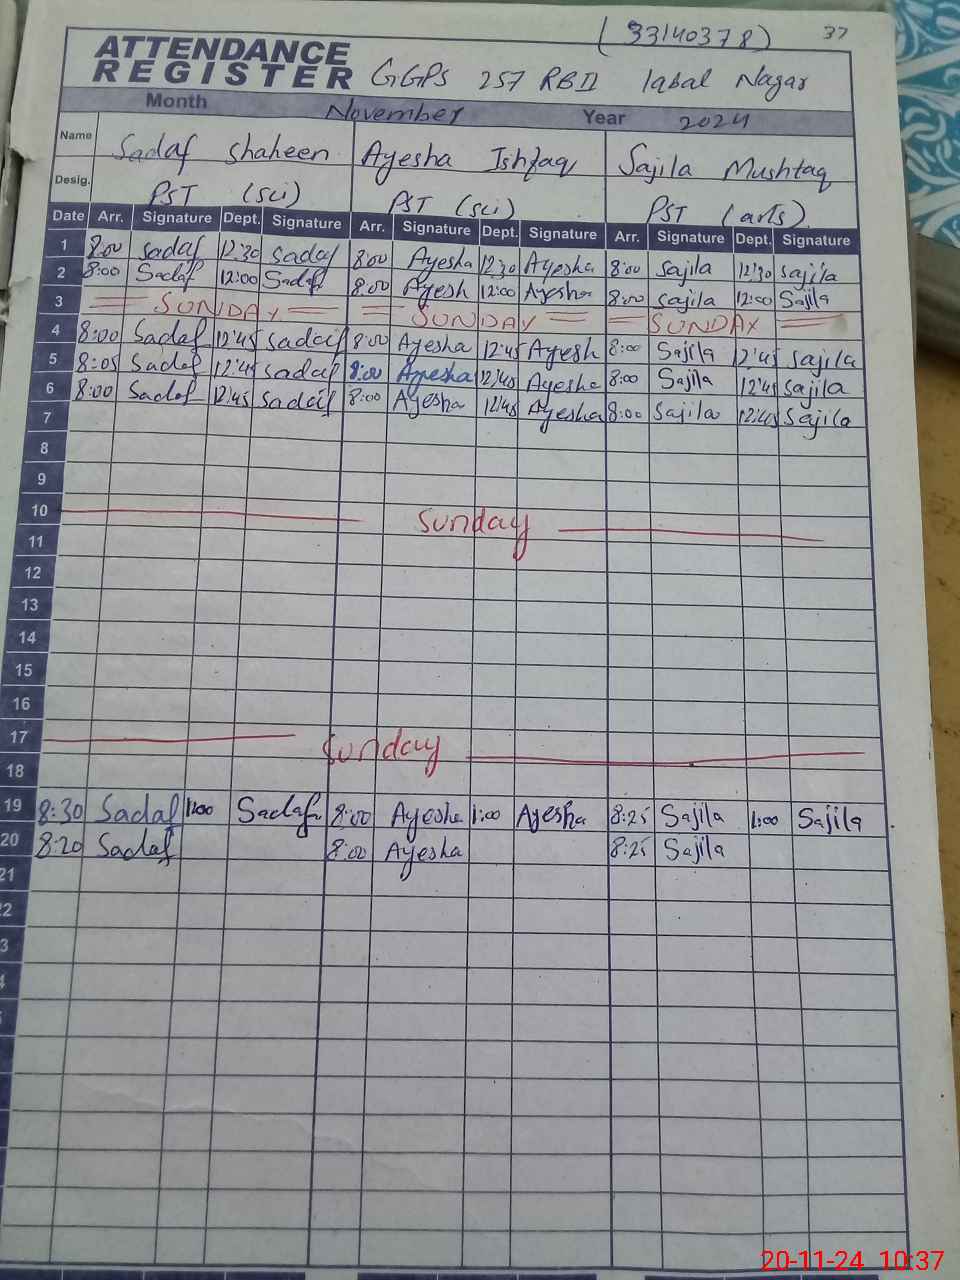 (33140378) 37
ATTENDANCE
REGISTER GGPS 257 RB II Iqbal Nagar
Month November Year 2024
Name Sadaf Shaheen Ayesha Ishfaq Sajila Mushtaq
Desig. PST (sci) PST (sci) PST (arts)
Date Arr. Signature Dept. Signature Arr. Signature Dept. Signature Arr. Signature Dept. Signature
1 8:00 sadaf 12:30 sadaf 8:00 Ayesha 12:30 Ayesha 8:00 Sajila 12:30 sajila
2 8:00 Sadaf 12:00 Sadaf 8:00 Ayesh 12:00 Ayesha 8:00 sajila 12:00 Sajila
3 SUNDAY SUNDAY SUNDAY
4 8:00 Sadaf 12:45 sadaf 8:00 Ayesha 12:45 Ayesh 8:00 Sajila 12:45 sajila
5 8:05 Sadaf 12:45 sadaf 8:00 Ayesha 12:45 Ayesha 8:00 Sajila 12:45 sajila
6 8:00 Sadaf 12:45 sadaf 8:00 Ayesha 12:45 Ayesha 8:00 Sajila 12:45 Sajila
7
8
9
10 Sunday
11
12
13
14
15
16
17 Sunday
18
19 8:30 Sadaf 1:00 Sadaf 8:00 Ayesha 1:00 Ayesha 8:25 Sajila 1:00 Sajila
20 8:20 Sadaf 8:00 Ayesha 8:25 Sajila
21
2
3
20-11-24 10:37